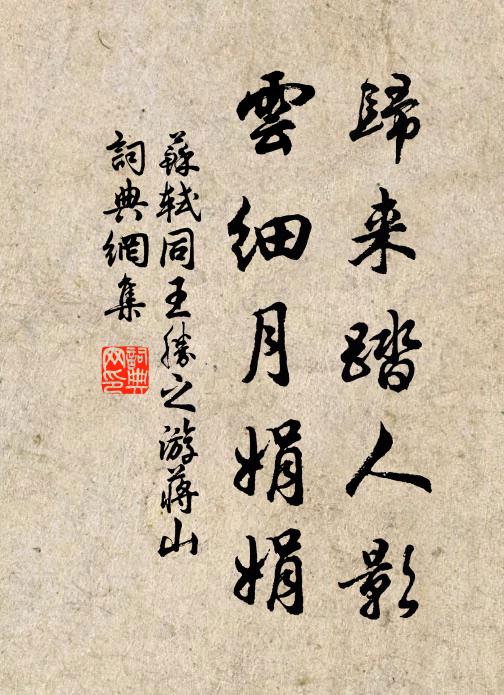 歸来踏人影
雲細月娟娟
蘇軾同王勝之游蔣山
詞典網集
詞典网印